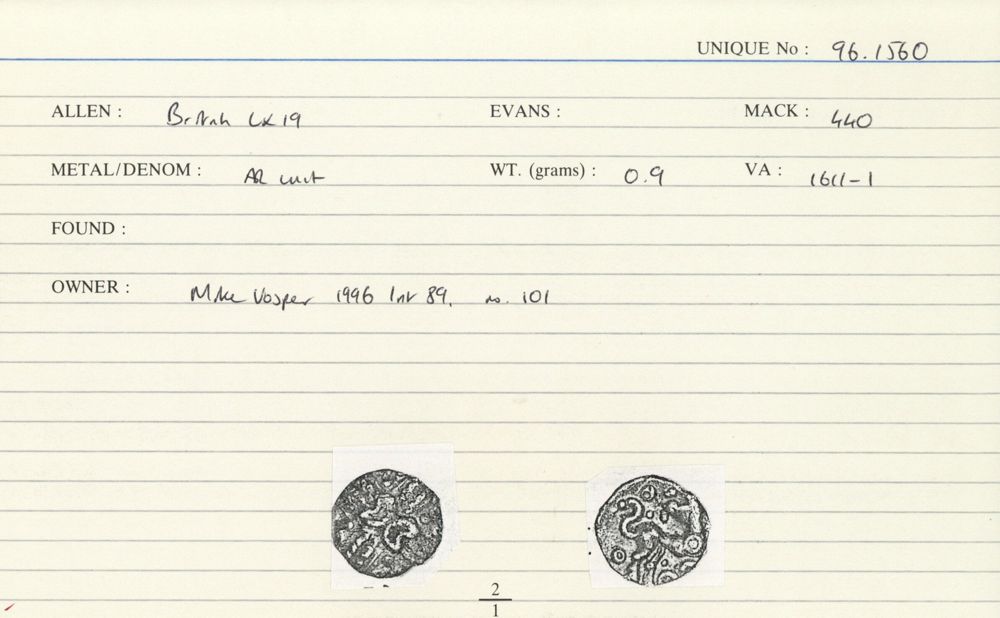 UNIQUE No : 96.1560
ALLEN : British LX 19 EVANS : MACK : 440
METAL/DENOM : AR unit WT. (grams) : 0.9 VA : 1611-1
FOUND :
OWNER : Mike Vosper 1996 Inv 89, no. 101
2
1